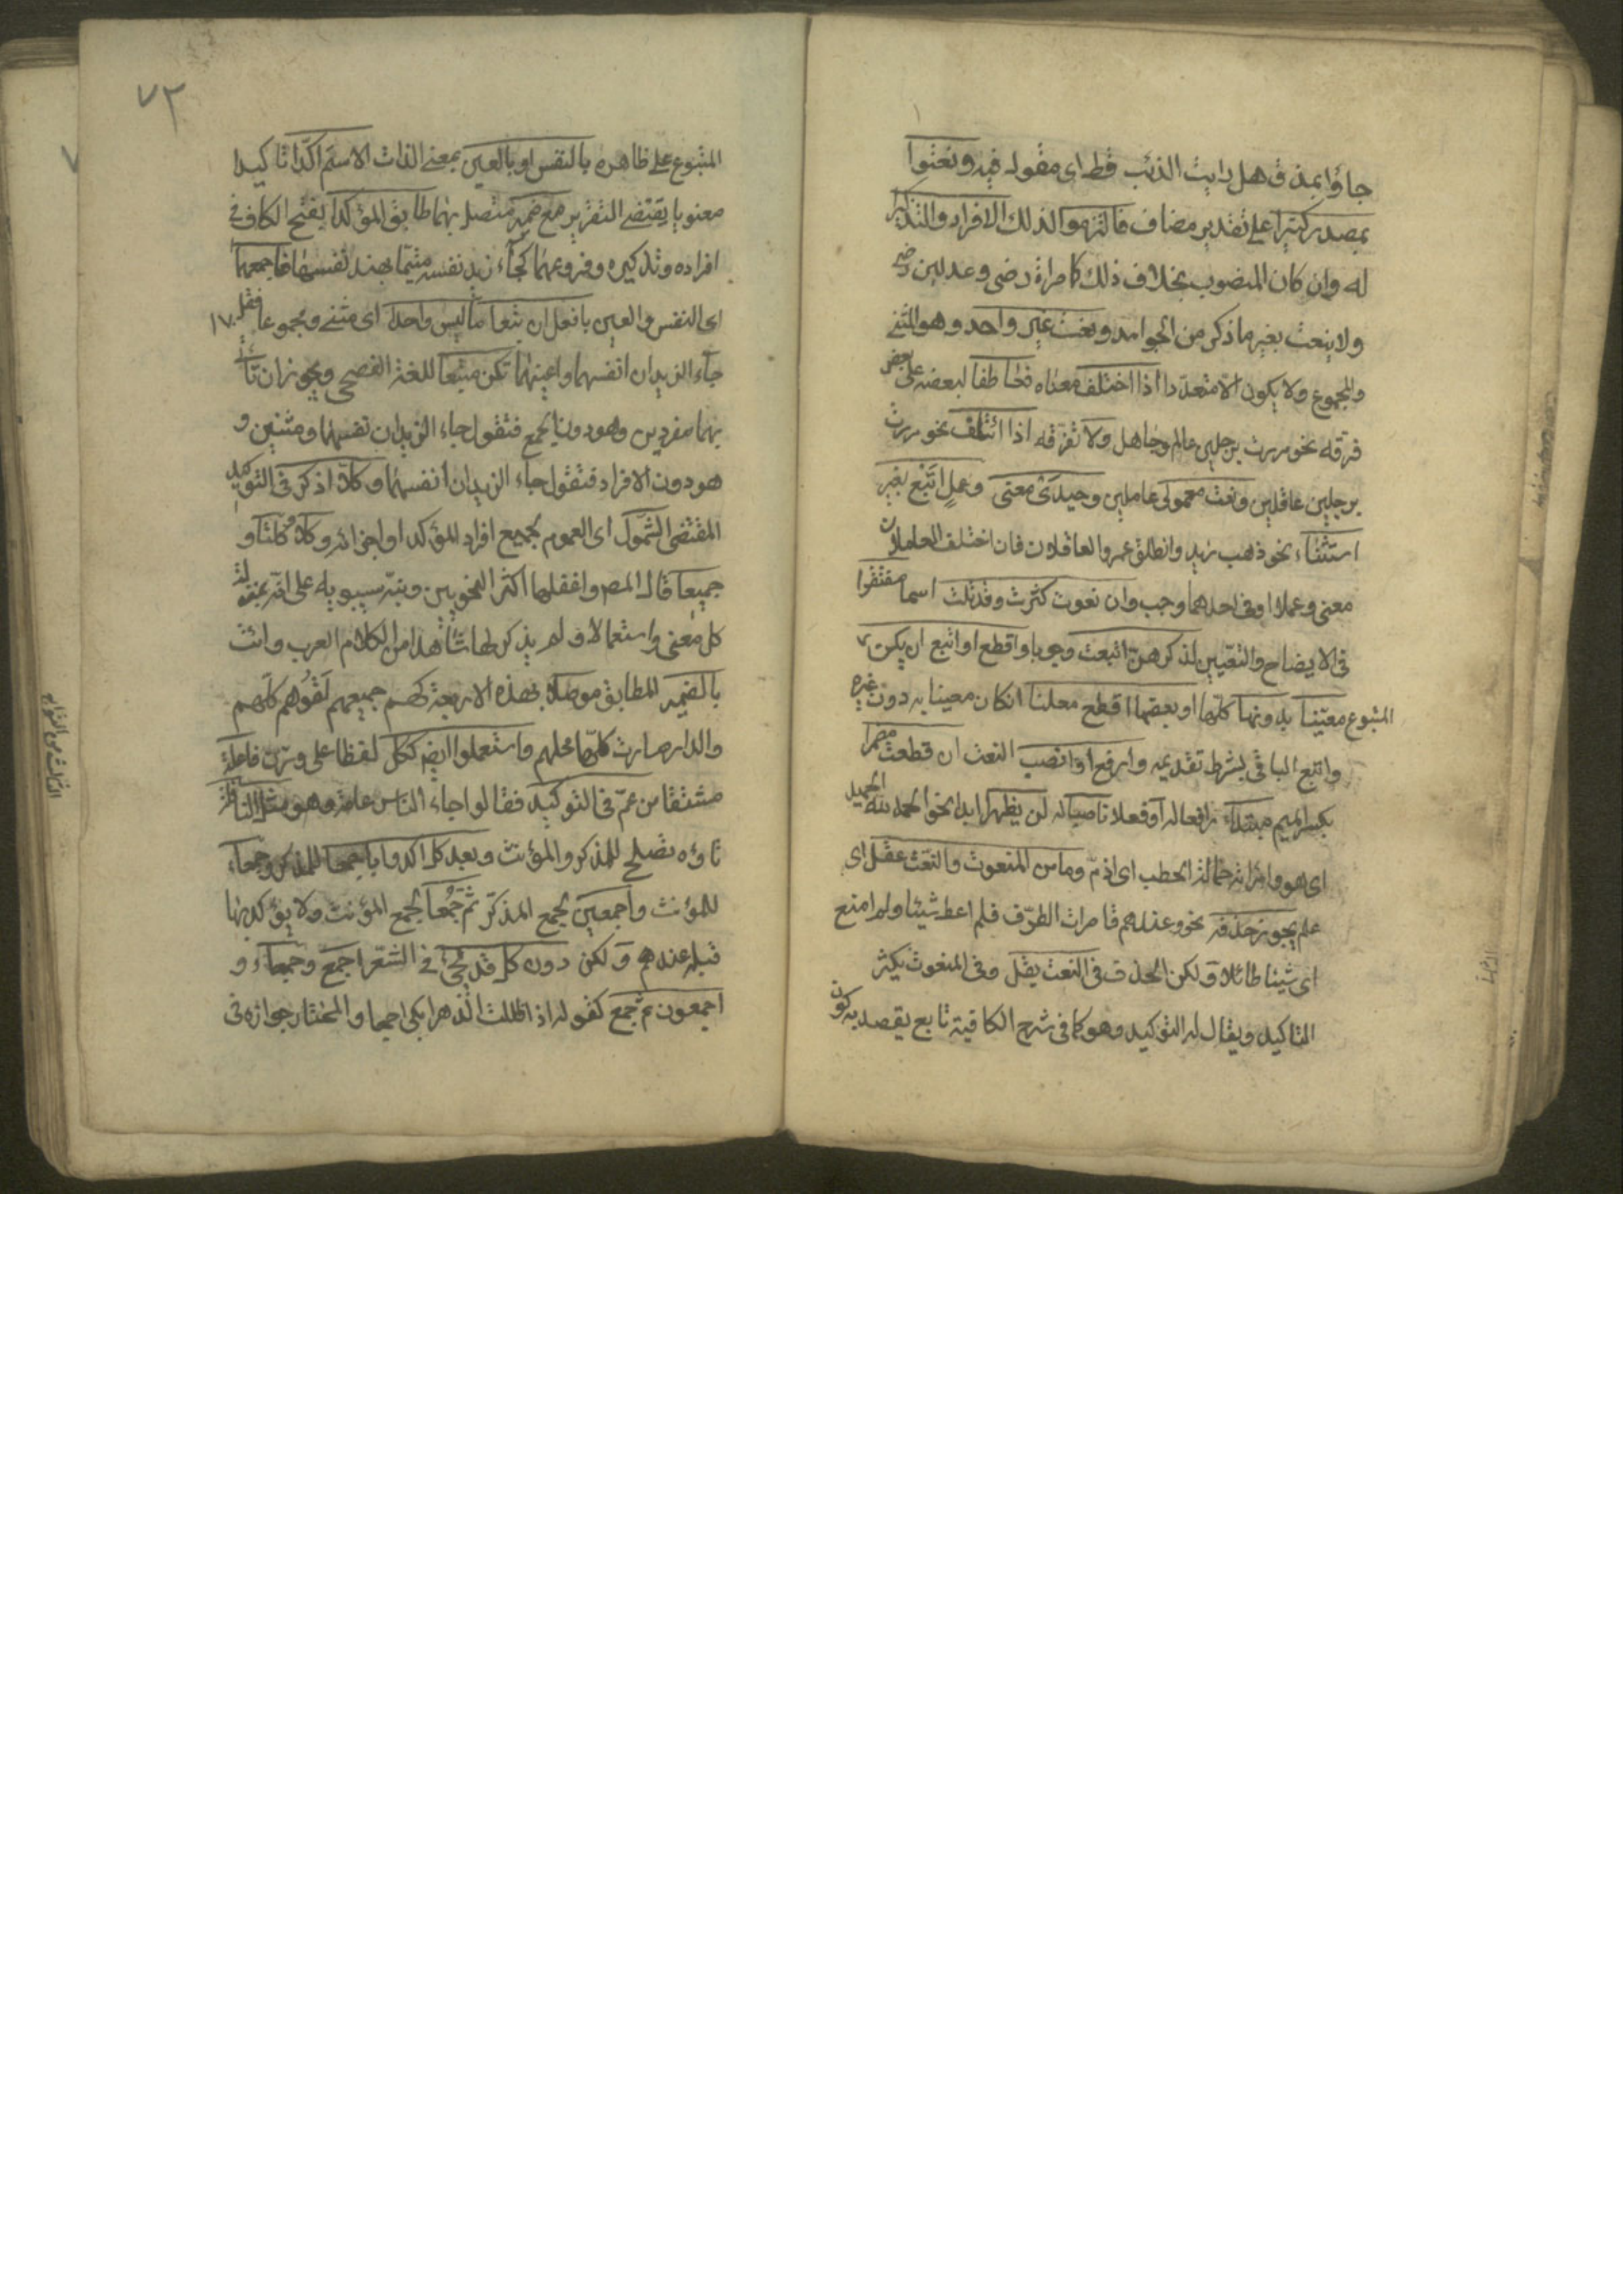 جاؤا بمذق هل رايت الذئب قط اى مقول فيه ونعتوا
بمصدر كثيرا على تقدير مضاف فالتزموا لذلك الافراد والتذكير
له وان كان المنعوت بخلاف ذلك كامراة رضى وعدلين رضى
ولا ينعت بغير ما ذكر من الجوامد ونعت غير واحد وهو المثنى
والمجموع ولا يكون الا متعددا اذا اختلف معناه فعاطفا لبعضه على بعض
فرقه نحو مررت برجلين عالم وجاهل ولا تفرقه اذا ائتلف نحو مررت
برجلين عاقلين ونعت معمولى عاملين وحيدى معنى وعمل اتبع بغير
استثناء نحو ذهب زيد وانطلق عمرو العاقلان فان اختلف العاملان
معنى وعملا او فى احدهما وجب وان نعوت كثرت وقد تلت اسما مفتقرا
فى الايضاح والتعيين لذكرهن اتبعت وجوبا واقطع او اتبع ان يكن
المتبوع معينا بدونها كلها او بعضها اقطع معلنا ان كان معينا به دون غيره
واتبع الباقى بشرط تقديمه وارفع او انصب النعت ان قطعت مضمرا
بكسر الميم مبتداء رافعا له او فعلا ناصبا له لن يظهرا ابدا نحو الحمد لله الحميد
اى هو وامراته حمالة الحطب اى اذم وما من المنعوت والنعت عقل اى
علم يجوز حذفه نحو وعندهم قاصرات الطرف فلم اعط شيئا ولم امنع
اى شيئا طائلا ولكن الحذف فى النعت يقل وفى المنعوت يكثر
التاكيد ويقال له التوكيد وهو كما فى شرح الكافية تابع يقصد به كون
٧٢
المتبوع على ظاهره بالنفس او بالعين بمعنى الذات الاسم اكدا تاكيدا
معنويا يقتضى التقرير مع ضمير متصل بهما طابق المؤكدا بفتح الكاف فى
افراده وتذكيره وفروعهما كجاء زيد نفسه متيما بهند نفسها فاجمعهما
اى النفس والعين بافعل ان تبعا ما ليس واحدا اى مثنى ومجموعا فقل
جاء الزيدان انفسهما واعينهما تكن متبعا للغة الفصحى ويجوز ان تاتى
بهما مفردين وهو دون الجمع فتقول جاء الزيدان نفسهما ومثنين و
هو دون الافراد فتقول جاء الزيدان نفسهما وكلا اذكر فى التوكيد
المقتضى الشمول اى العموم لجميع افراد المؤكد او اجزائه وكلا كلتا و
جميعا قال المص واغفلها اكثر النحويين ونبه سيبويه على انه بمنزلة
كل معنى واستعمالا ولم يذكر لها شاهدا من الكلام العرب واتت
بالضمير المطابق موصلا بهذه الاربعة كهم جميعهم لقوهم كلهم
والدار صارت كلها محلهم واستعملوا ايضا ككل لفظا على وزن فاعلة
مشتقا من عم فى التوكيد فقالوا جاء الناس عامة وهو مثل النافلة
تاؤه تصلح للمذكر والمؤنث وبعد كل اكدوا باجمعا للمذكر وجمعاء
للمؤنث واجمعين لجمع المذكر ثم جمعا لجمع المؤنث ولا يؤكد بها
قبله عندهم ولكن دون كل قد يجئ فى الشعر اجمع وجمعاء و
اجمعون ثم جمع كقوله اذا ظللت الدهر ابكى اجمعا والمختار جوازه فى